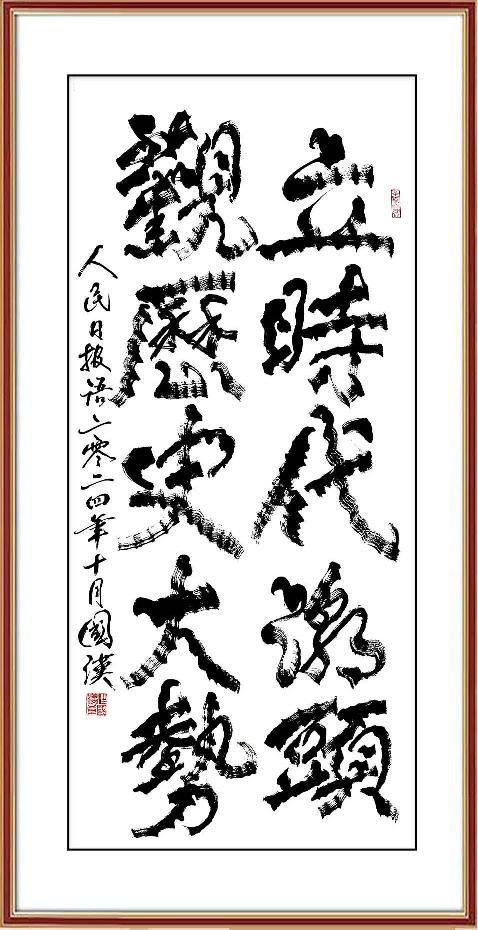 立時代潮頭
觀歷史大勢
人民日报语二零二四年十月國漢